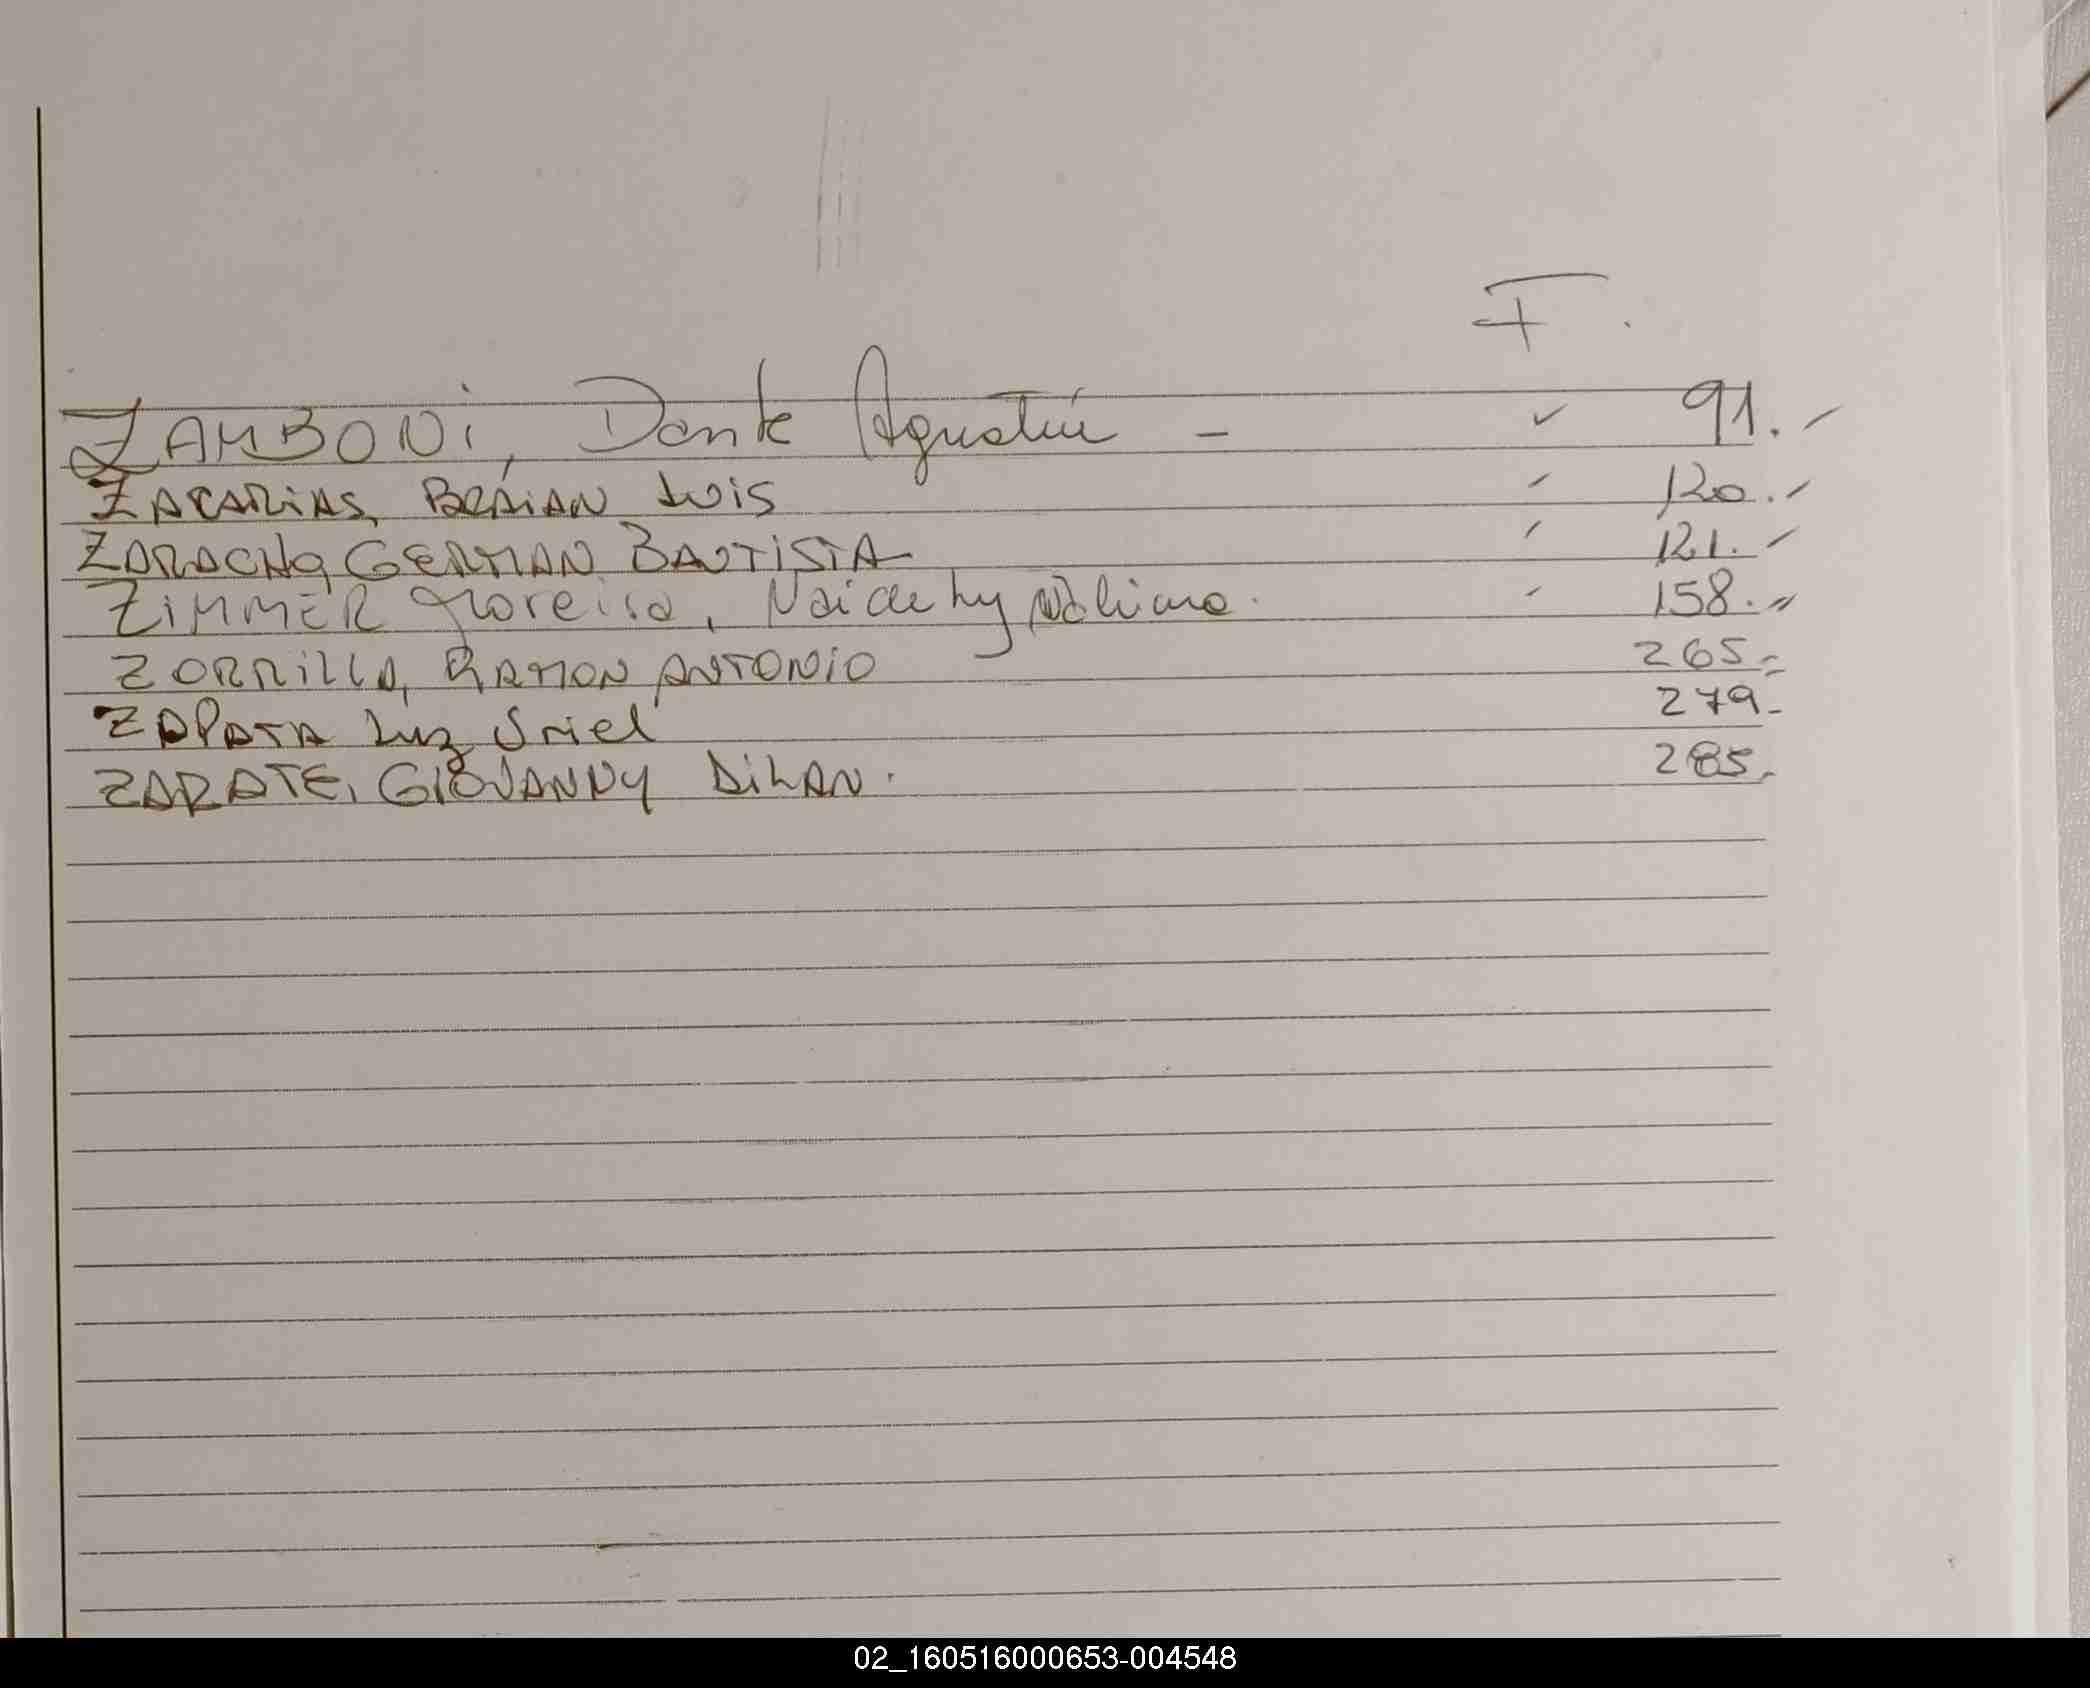 F.
ZAMBONI, Dante Agustín - ✓ 91.-
ZACARIAS, BRAIAN LUIS 120.-
ZARACHO, GERMAN BAUTISTA 121.-
ZIMMER Moreira, Naidehy 158.-
ZORRILLA, RAMON ANTONIO 265.-
ZAPATA Luz Uriel 279-
ZARATE, GIOVANNY DILAN. 285.
02_160516000653-004548